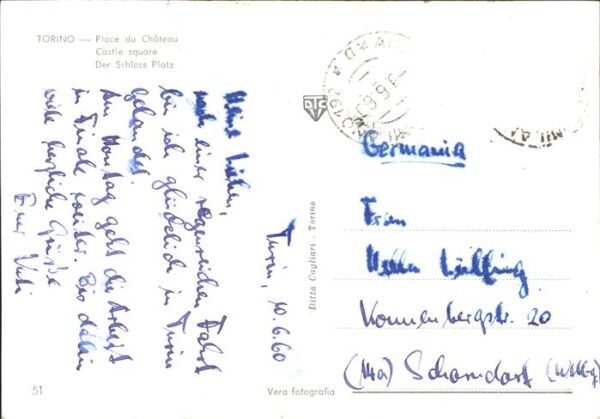 TORINO — Piace du Château
Castle square
Der Schloss Platz
Turin, 10.6.60
nach einer regenreichen Fahrt
bin ich glücklich in Turin
gelandet.
Am Montag geht die Arbeit
in Finale weiter. Bis dahin
viele herzliche Grüsse
Euer
Ditta Cagliari - Torino
Germania
Frau
Lülfing
Konnenbergstr. 20
(14a) Schorndorf (Wttbg)
51
Vera fotografia